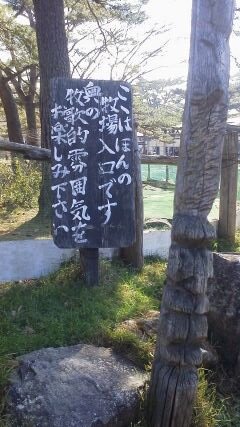 こはほんの
牧場入口です
奥の
牧歌的雰囲気を
お楽しみ下さい